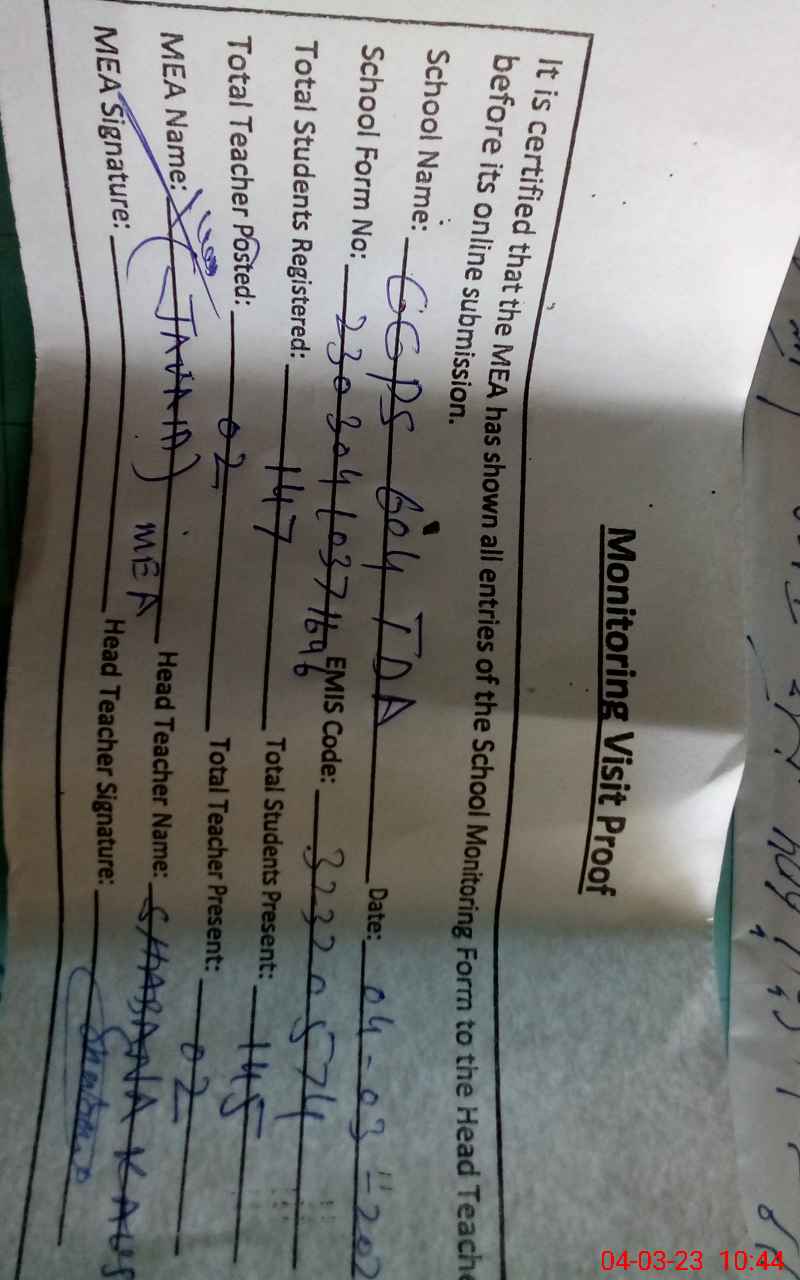 Monitoring Visit Proof
It is certified that the MEA has shown all entries of the School Monitoring Form to the Head Teache
before its online submission.
School Name: GGPS 604 TDA Date: 04-03-202
School Form No: 23030410371696 EMIS Code: 32320574
Total Students Registered: 147 Total Students Present: 145
Total Teacher Posted: 02 Total Teacher Present: 02
MEA Name: (JAVAID) MEA Head Teacher Name: SHABANA KAUS
MEA Signature: Head Teacher Signature:
04-03-23 10:44